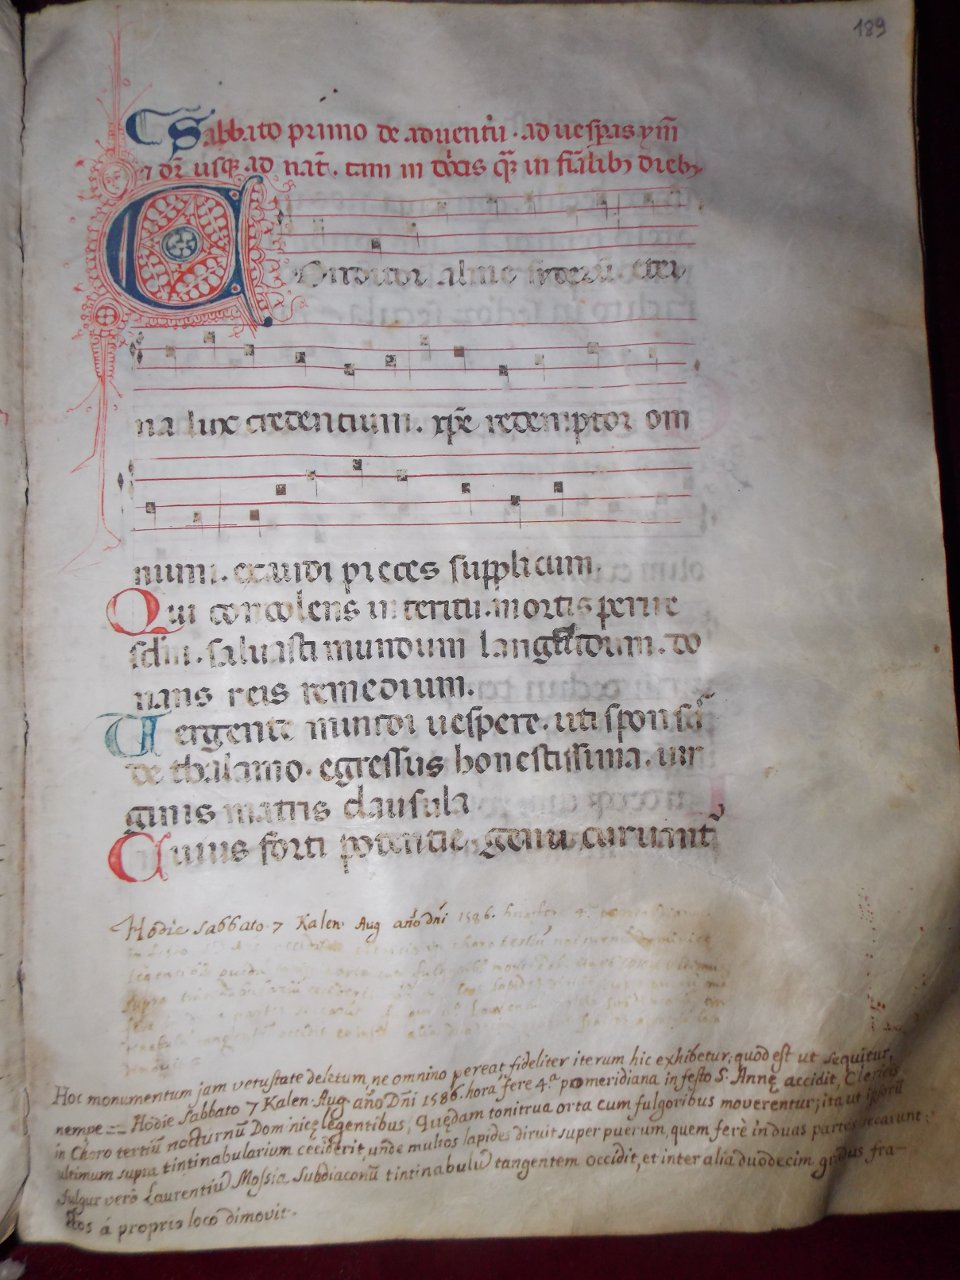 189
Sabbato primo de aduentu. ad uesperas ym̄
⁊ dr̄ usq; ad nat̄. tam in dōicis q̄ꝫ in ferialib; dieb;
Conditor alme syderum eter
na lux credentium. xp̄e redemptor om
nium. exaudi preces supplicum.
Qui condolens interitu. mortis perire
sclm. saluasti mundum languidum. do
nans reis remedium.
Uergente mundi uespere. uti sponsus
de thalamo. egressus honestissima. uir
ginis matris clausula
Cuius forti potentie. genu curuant᷑
Hodie sabbato 7 Kalen Aug año Dñi 1586.
Hoc monumentum jam vetustate deletum, ne omnino pereat, fideliter iterum hic exhibetur, quod est ut sequitur,
nempe = Hodie Sabbato 7 Kalen. Aug. año Dñi 1586. hora fere 4.ª pomeridiana in festo S. Annę accidit, Clericis
in Choro tertiũ nocturnũ Dominicę legentibus, Quędam tonitrua orta cum fulgoribus moverentur; ita ut ipsorũ
ultimum supra tintinabularium ceciderit, unde multos lapides diruit super puerum, quem ferè in duas partes secarunt;
fulgur verò Laurentiũ Mossia Subdiaconũ tintinabulũ tangentem occidit, et inter alia duodecim gradus fra-
ctos á proprio loco dimovit.